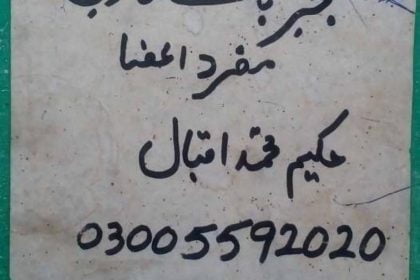 مفرد اعضا
حکیم محمد اقبال
03005592020